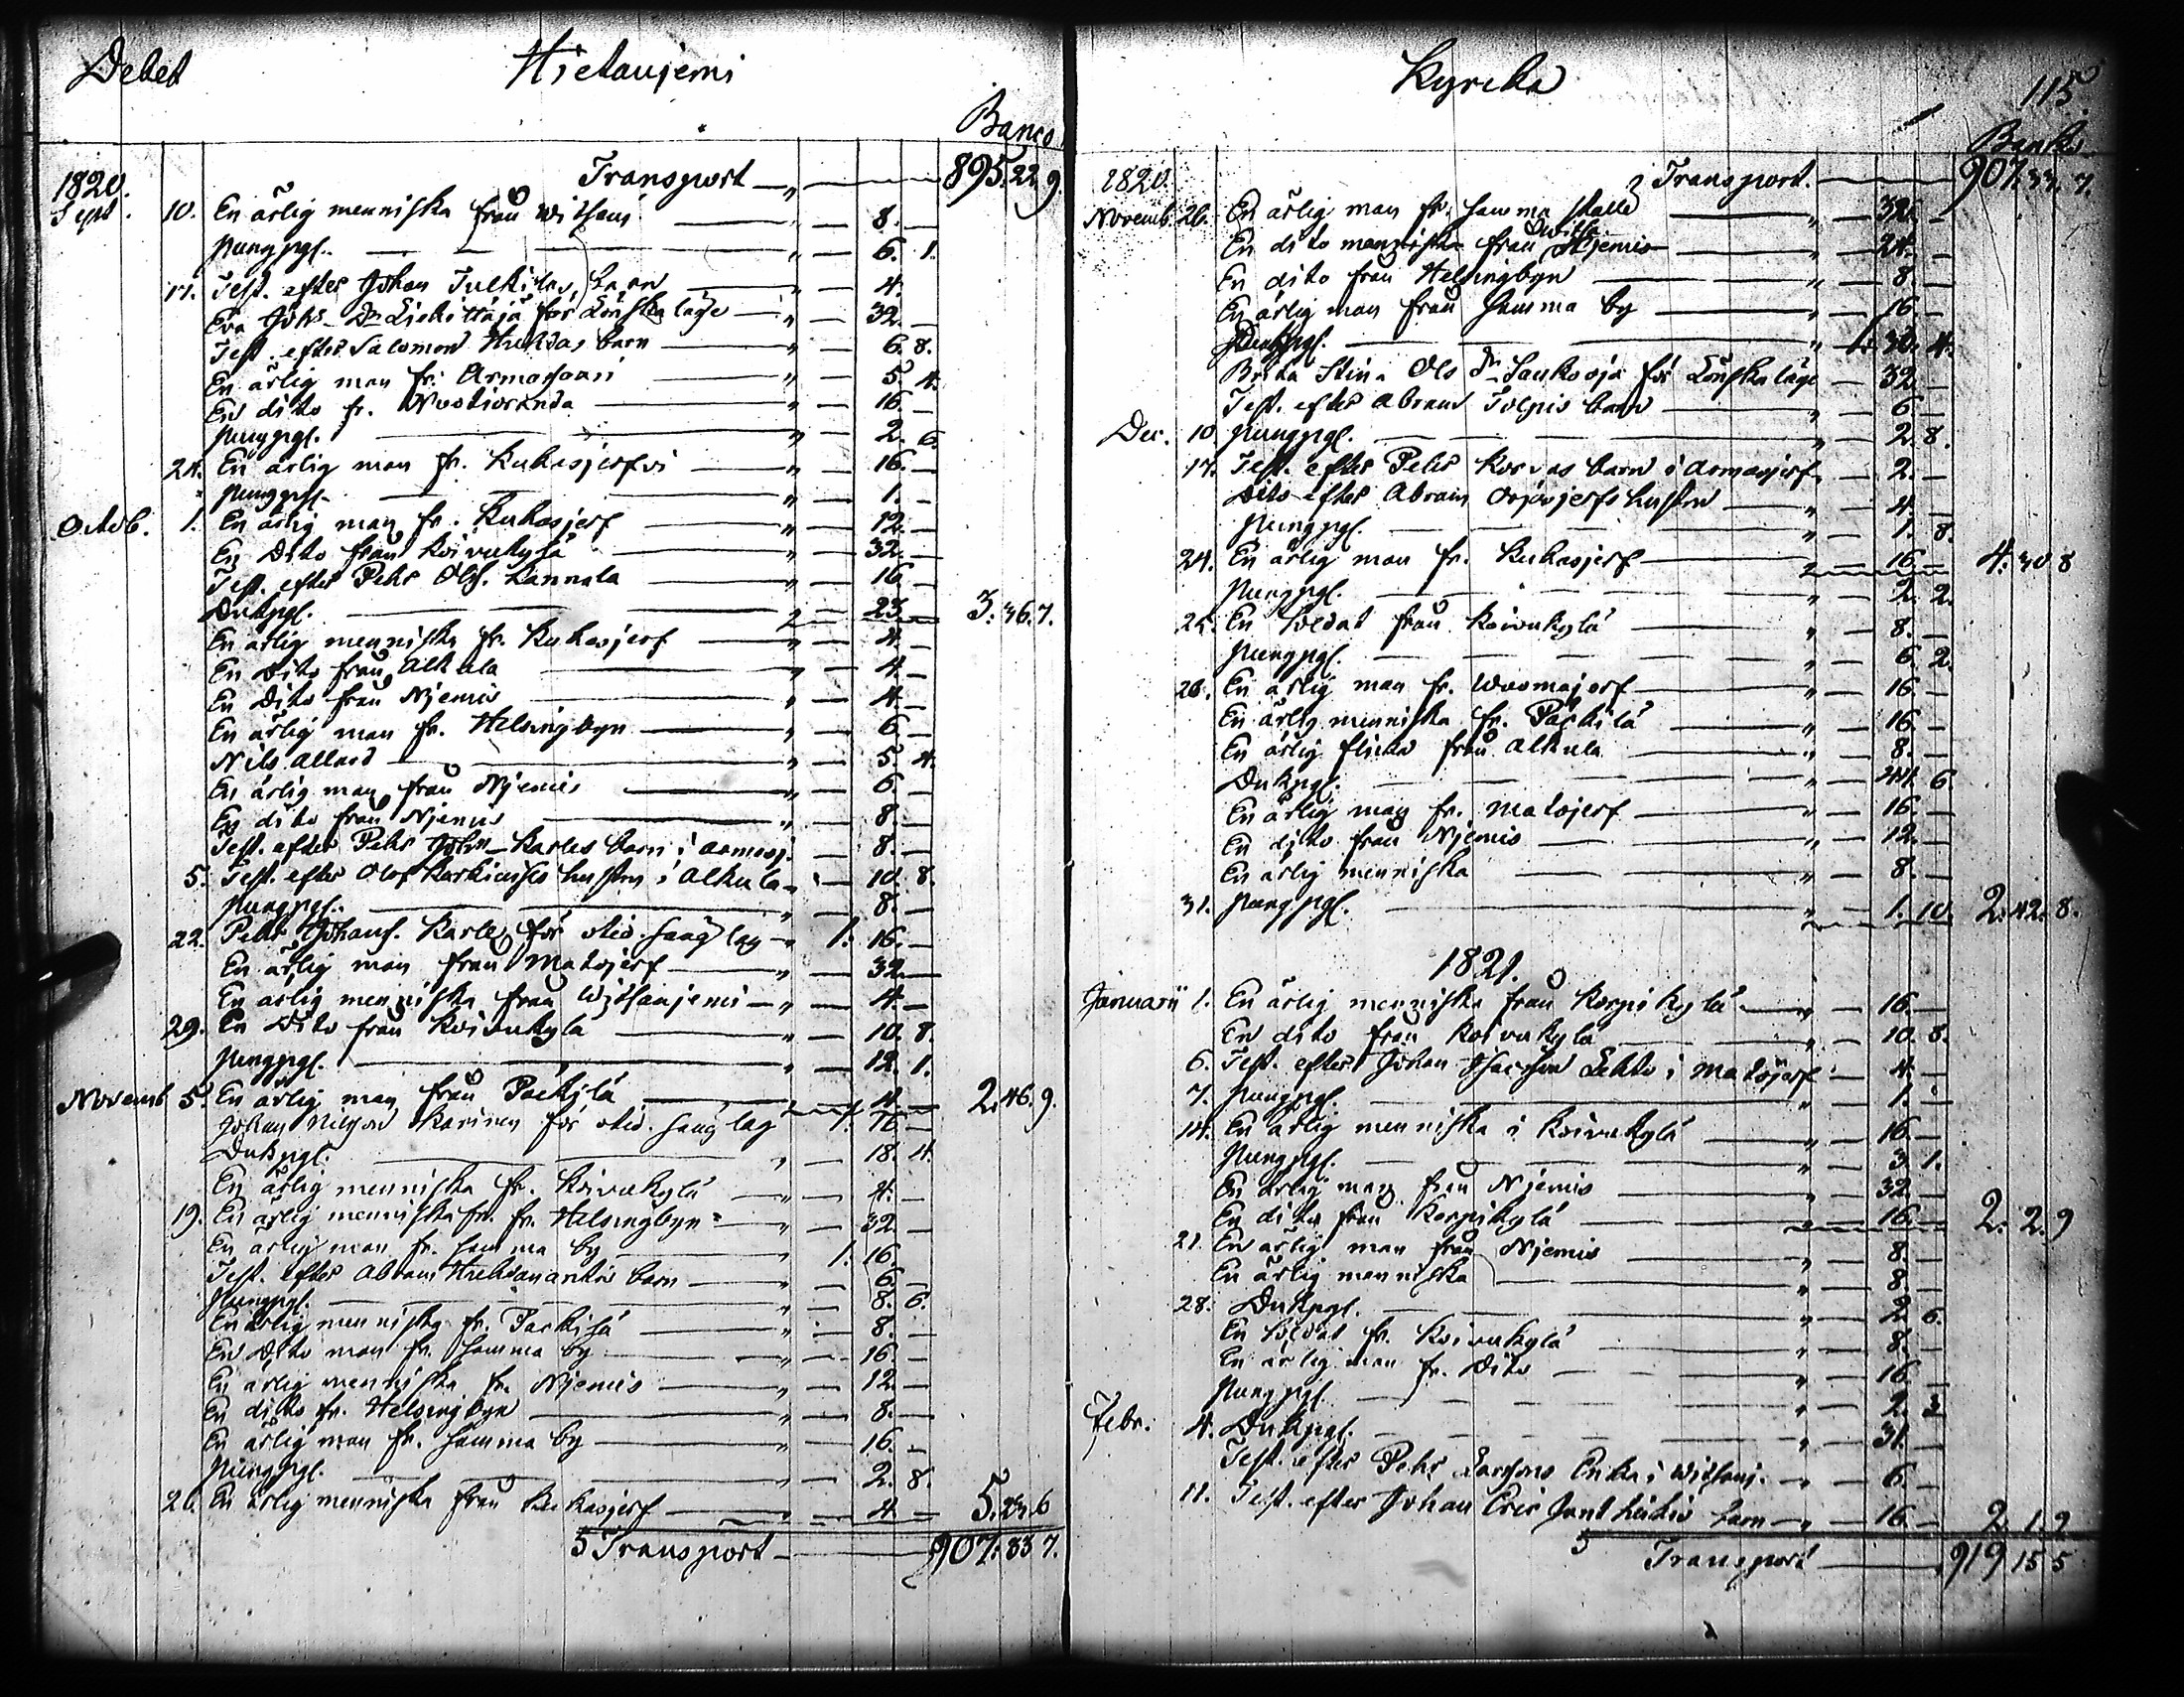 Debet Hietaniemi
Banco
1820. Transport 895. 22 9.
Sept. 10. En ärlig menniska från Witsani 8.
Pungpgr. 6. 1.
17. Test. efter Johan barn 4.
Eva Johs. Dr för Lönskaläge 32.
Test. efter Salomon barn 6. 8.
En ärlig man fr. Armassaari 5. 4.
En dito fr. Wuotioranda 16.
Pungpgr. 2. 6.
24. En ärlig man fr. Kukasjerfvi 16.
Pungpgr. 1.
Octob. 1. En ärlig man fr. Kukasjerf 12.
En Dito från Koivukylä 32.
Test. efter Pehr Olofs. Kannala 16.
Dukpgr. 23. 3. 36. 7.
En ärlig menniska fr. Kukasjerf 4.
En Dito från Alkula 4.
En Dito från Njemis 4.
En ärlig man fr. Helsingbyn 6.
Nils Allard 5. 4.
En ärlig man från Njemis 6.
En dito från Njemis 8.
Test. efter Pehr Johns. Karles barn i armasj. 8.
5. Test. efter Olof hustru i Alkula 10. 8.
Pungpgr. 8.
22. Pehr Johans. Karle för otid. sänglag 1. 16.
En ärlig man från Matojerf 32.
En ärlig menniska från Witsanjemi 4.
29. En Dito från Koivukylä 10. 8.
Pungpgr. 12. 1.
Novemb 5. En ärlig man från Päckilä 4. 2. 46. 9.
Johan Nilsson Karinen för otid. sänglag 1. 16
Dukpgr. 18. 4.
En ärlig menniska fr. Koivukylä 4.
19. En ärlig menniska fr. fr. Helsingbyn 32
En ärlig man fr. samma by 1. 16.
Test. efter Abram barn 6.
Pungpgr. 8. 6.
En ärlig menniska fr. Päckilä 8.
En Dito man fr. samma by 16.
En ärlig menniska fr. Njemis 12.
En dito fr. Helsingbyn 8.
En ärlig man fr. samma by 16.
Pungpgr. 2. 8.
26. En ärlig menniska från Kukasjerf 4. 5. 6
Transport 907. 33 7.
Kyrcka 115
Banko
1820. Transport. 907. 33. 7.
Novemb. 26. En ärlig man fr. samma ställe 32.
En dito menniska från Njemis 24.
En dito från Helsingbyn 8
En ärlig man från samma by 16
Dukpgr. 1. 4.
Brita Stina Ols Dr för Lönskaläge 32
Test. efter Abram barn 6
Dec. 10. Pungpgr. 2. 8.
17. Test. efter Pehr Korvas barn i Armasjerf 2.
Dito efter Abram hustru 4.
Pungpgr. 1. 8.
24. En ärlig man fr. Kukasjerf 16 4. 30 8
Pungpgr. 2. 2.
25. En Soldat från Koivukylä 8.
Pungpgr. 6. 2.
26. En ärlig man fr. Wuomajerf 16.
En ärlig menniska fr. Päckilä 16.
En ärlig flicka från Alkula 8.
Dukpgr. 44. 6.
En ärlig man fr. Matojerf 16.
En dito från Njemis 12.
En ärlig menniska 8.
31. Pungpgr. 1. 10. 2. 42. 8.
1821.
Januarii 1. En ärlig menniska från Korpikylä 16.
En dito från Koivukylä 10. 8.
6. Test. efter Johan i Matojerf 4.
7. Pungpgr. 1.
14. En ärlig menniska i Koivukylä 16.
Pungpgr. 3 1.
En ärlig man från Njemis 32.
En dito från Korpikylä 16. 2. 2. 9
21. En ärlig man från Njemis 8.
En ärlig menniska 8.
28. Dukpgr. 2 6.
En Soldat fr. Koivukylä 8.
En ärlig man fr. Dito 16.
Pungpgr. 2. 3
Febr. 4. Dukpgr. 31.
Test. efter Pehr Larssons Enka i Witsanj. 6.
11. Test. efter Johan Eric barn 16. 2. 1. 2
Transport 919 15 5